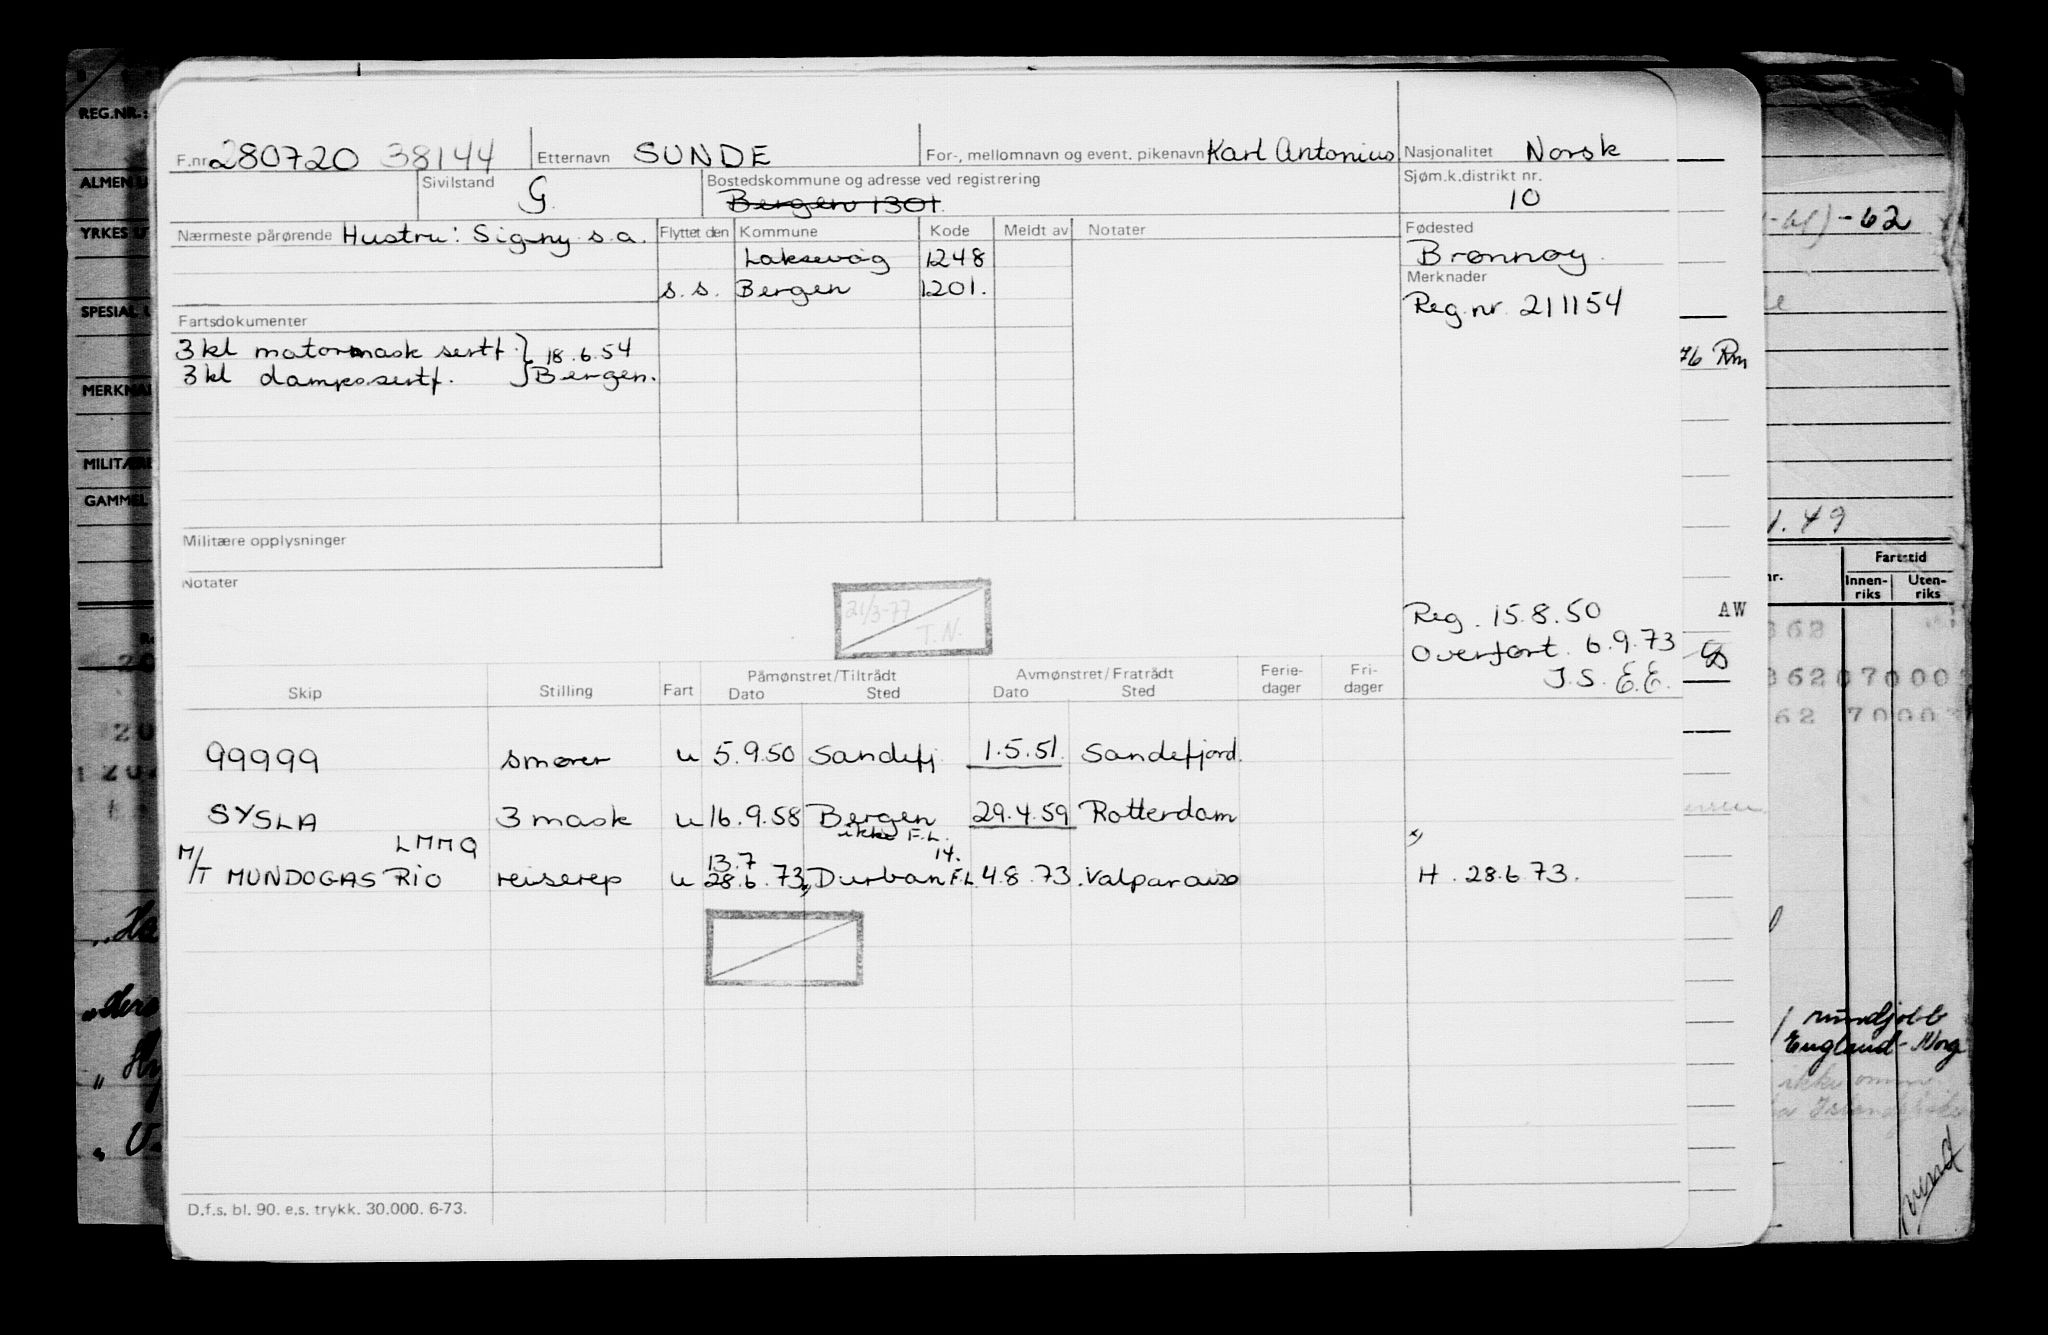 REG.NR.:
F.nr. 280720 38144 Etternavn SUNDE For-, mellomnavn og event. pikenavn Karl Antonius Nasjonalitet Norsk
Sivilstand G. Bostedskommune og adresse ved registrering Bergen 1301 Sjøm.k.distrikt nr. 10
Nærmeste pårørende Hustru: Signy s.a. Flyttet den Kommune Kode Meldt av Notater Fødested
Laksevåg 1248 Brønnøy
Merknader
s.s. Bergen 1201. Reg.nr. 211154
Fartsdokumenter
3 kl motormask sertf. } 18.6.54
3 kl dampsertf. } Bergen.
Militære opplysninger
Notater
21/3-77
T.N.
Reg. 15.8.50
Overført. 6.9.73
J.S. E.E.
Skip Stilling Fart Påmønstret/Tiltrådt Dato Sted Avmønstret/Fratrådt Dato Sted Ferie-dager Fri-dager
99999 smører u 5.9.50 Sandefj. 1.5.51 Sandefjord.
SYSLA 3 mask u 16.9.58 Bergen 29.4.59 Rotterdam
LMMQ 13.7 ikke F.L. 14. x)
M/T MUNDOGAS RIO reiserep u 28.6.73 Durban F.L 4.8.73. Valparaiso H. 28.6.73.
D.f.s. bl. 90. e.s. trykk. 30.000. 6-73.
ALMEN
YRKES
SPESIAL
MERKNA
MILITÆRE
GAMMEL
-62
76 Rm
1.49
Fartstid
nr. Innen-riks Uten-riks
AW
362
362 07000
62 7000
rundjobb
England-Norge